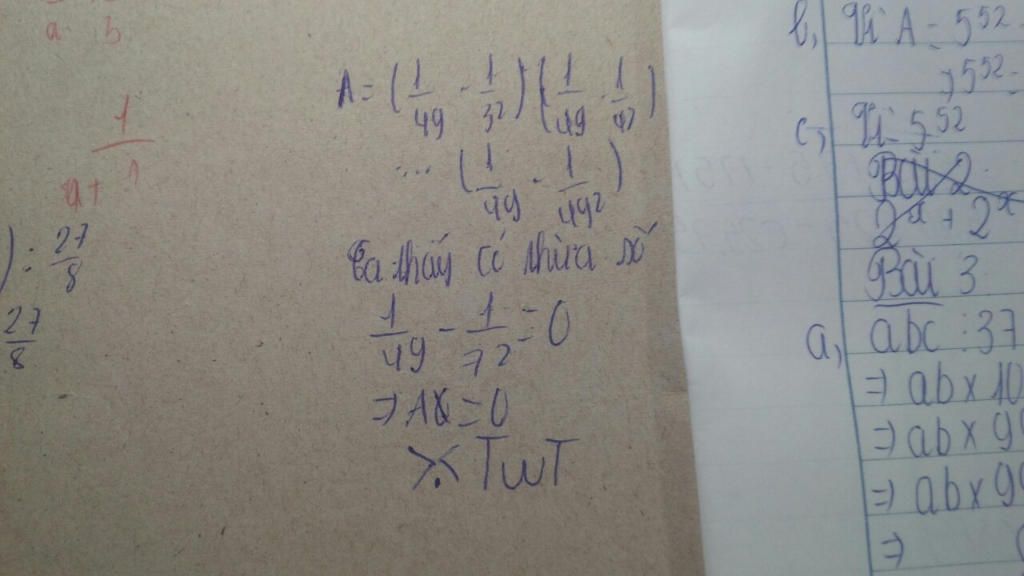 a b
1
a + 1
) : 27/8
27/8
A = (1/49 - 1/3²) (1/49 - 1/4²)
... (1/49 - 1/49²)
Ta thấy có thừa số
1/49 - 1/7² = 0
=> A = 0
TwT
b, Vì A = 5⁵²
5⁵²
c, Vì 5⁵²
Bài 2
2ˣ + 2ˣ
Bài 3
a, abc : 37
=> ab x 10
=> ab x 99
=> ab x 99
=>